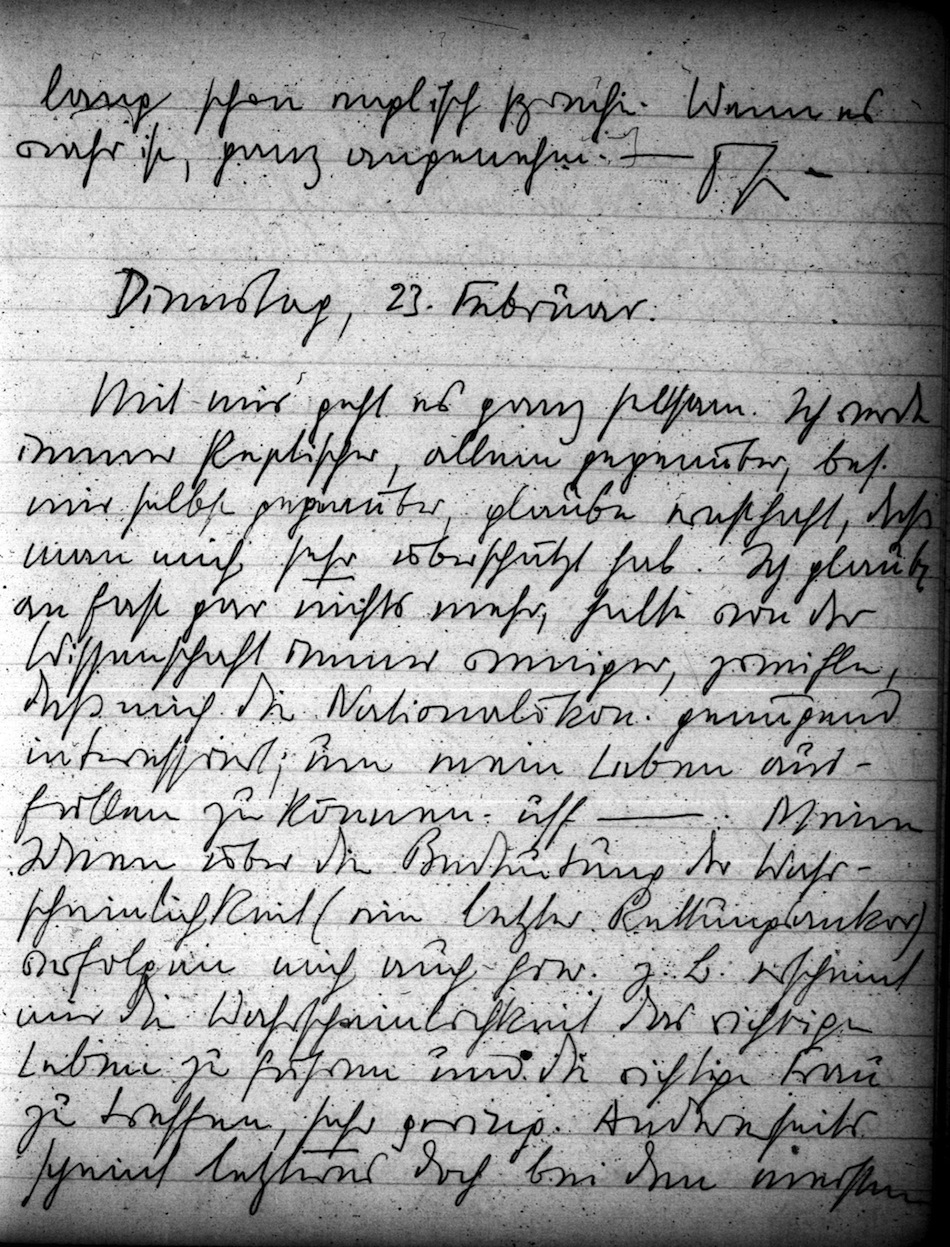 lang schon englisch spreche. Wenn es
wahr ist, ganz angenehm. —
Dienstag, 23. Februar.
Mit mir geht es ganz seltsam. Ich werde
immer skeptischer, allem gegenüber, bes.
mir selbst gegenüber, glaube ernsthaft, daß
man mich sehr überschätzt hab. Ich glaube
an fast gar nichts mehr, halte von der
Wissenschaft immer weniger, zweifle,
daß mich die Nationalökon. genügend
interessiert, um mein Leben aus-
füllen zu können. uff —. Meine
Ideen über die Bedeutung der Wahr-
scheinlichkeit (ein letzter Rettungsanker)
verfolgen mich auch hier. z. B. erscheint
mir die Wahrscheinlichkeit das richtige
Leben zu führen und die richtige Frau
zu treffen, sehr gering. Anderseits
scheint letzteres doch bei den meisten